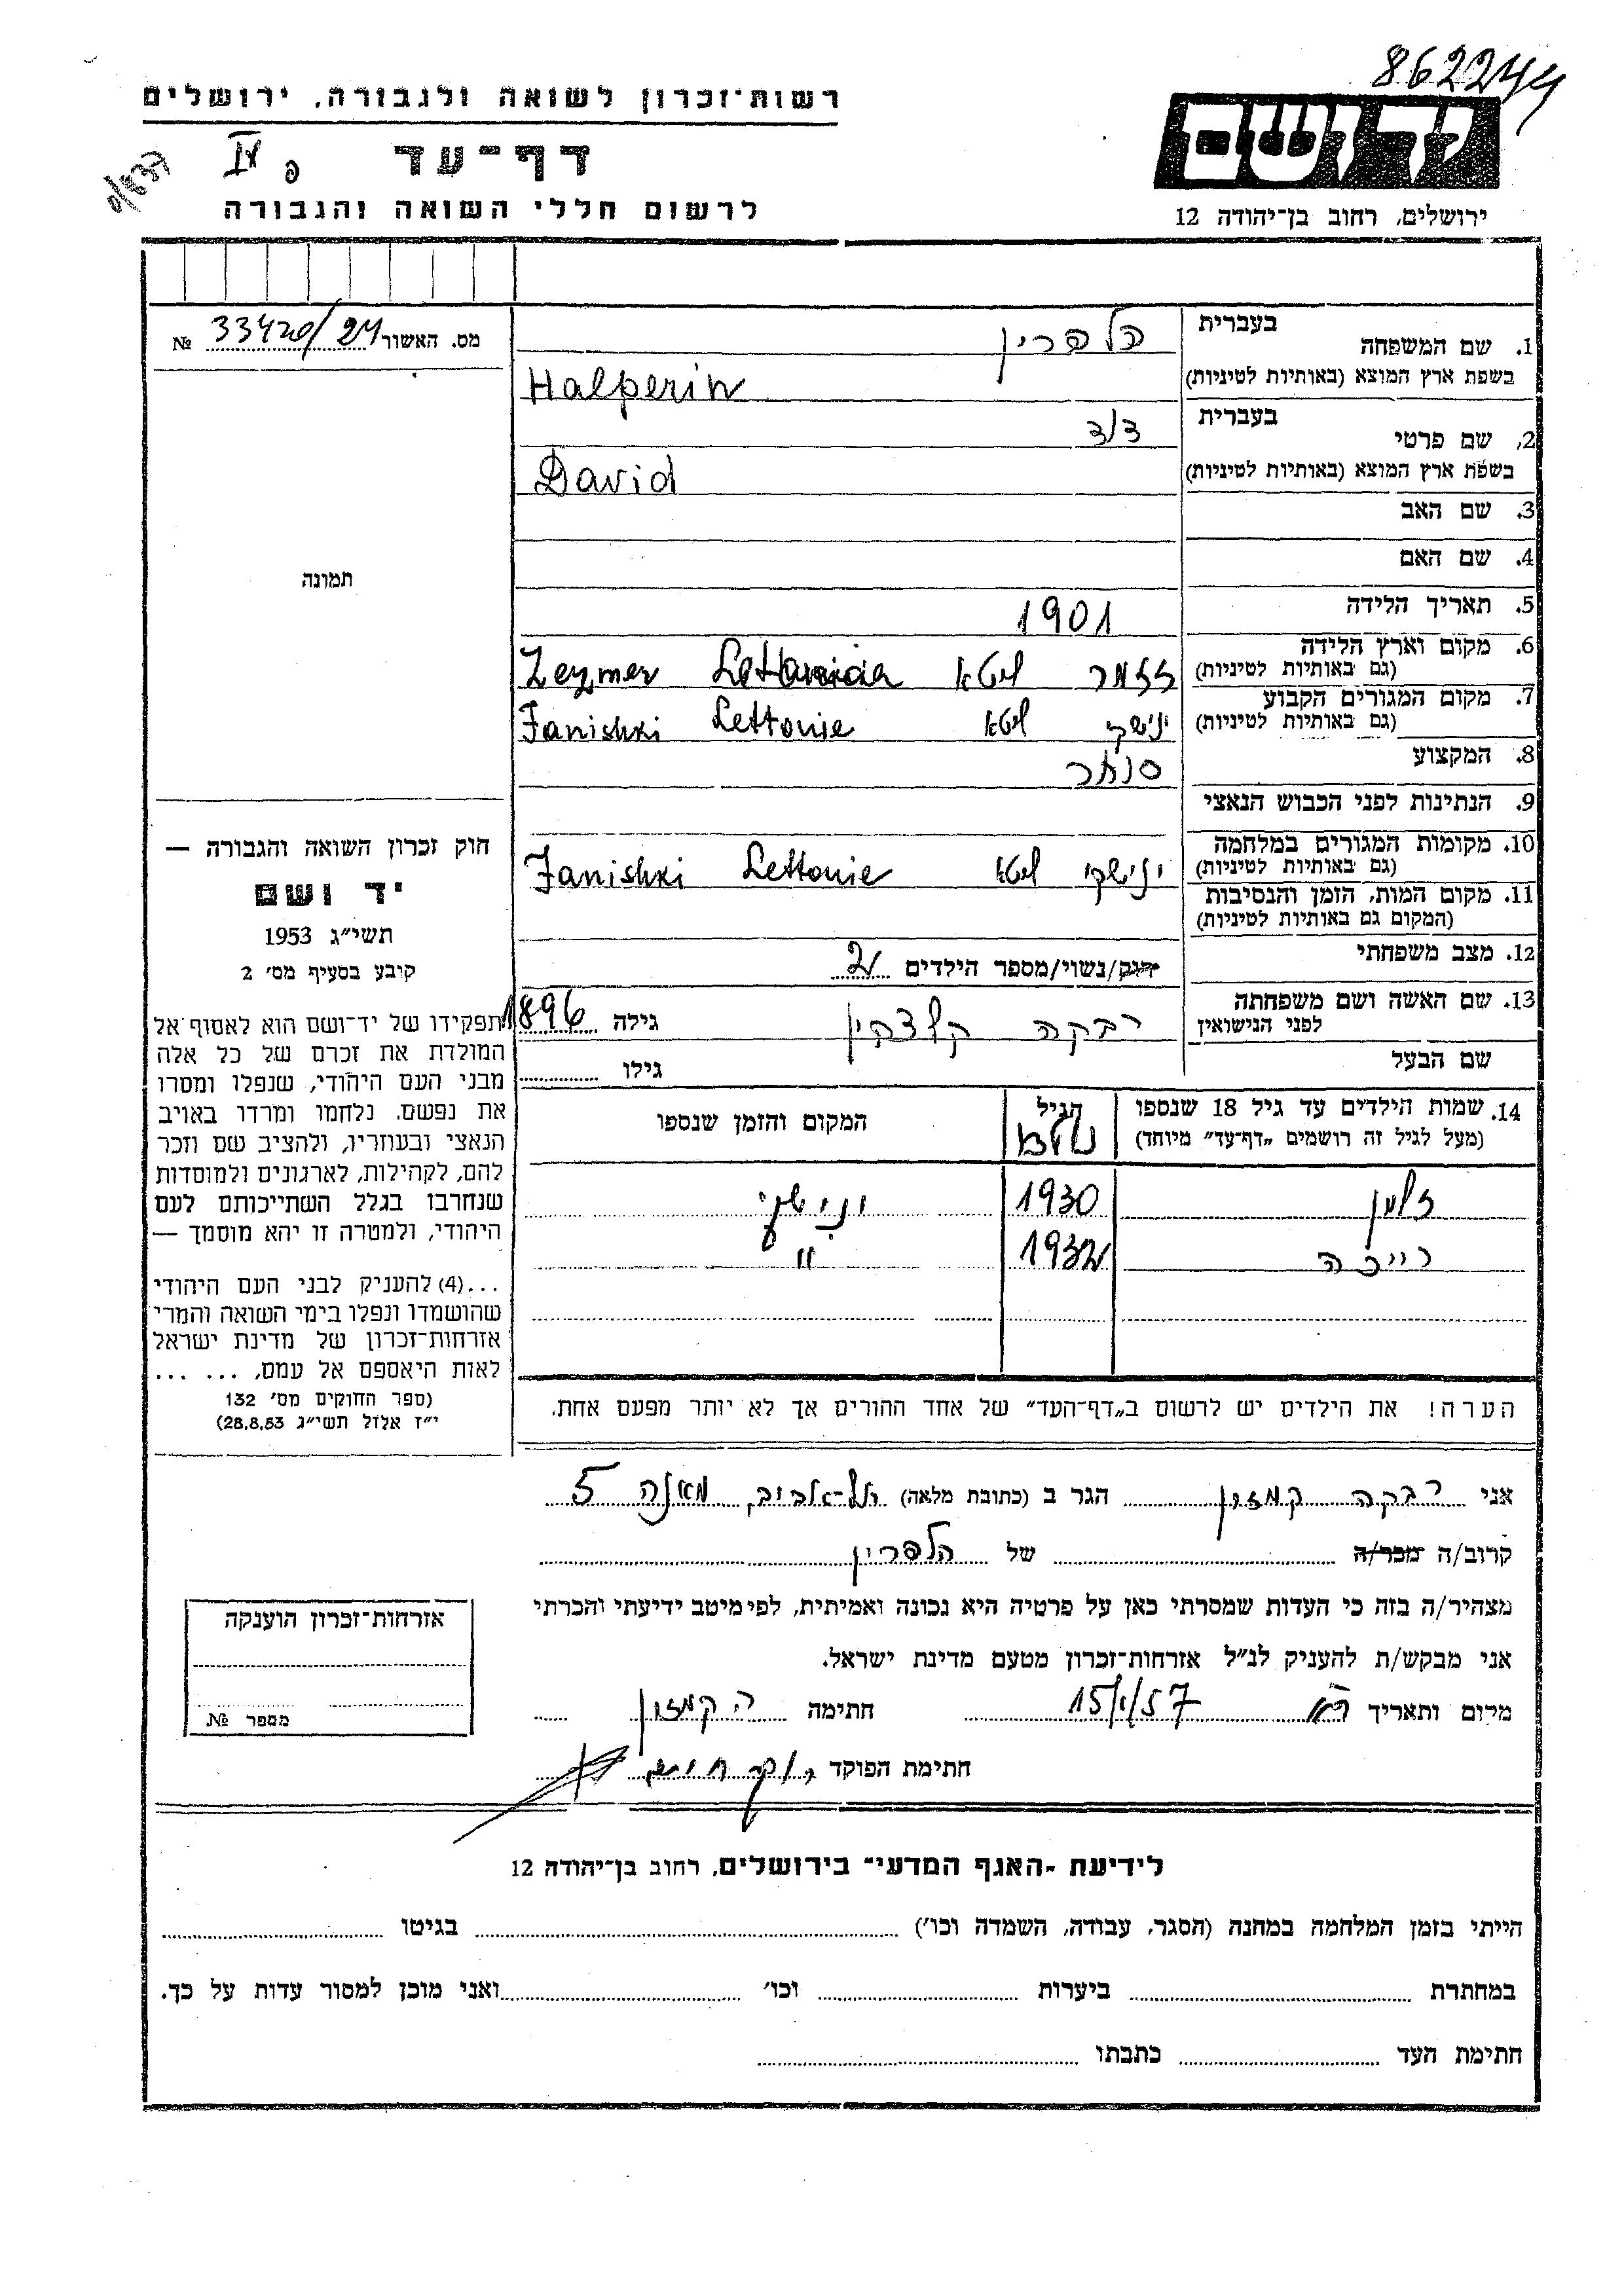 862244
רשות־זכרון לשואה ולגבורה, ירושלים
דף־עד
IV
לרשום חללי השואה והגבורה
יד ושם
ירושלים, רחוב בן־יהודה 12
מס. האשור 33420/24 №
1. שם המשפחה
בעברית
הלפרין
בשפת ארץ המוצא (באותיות לטיניות)
Halperin
2. שם פרטי
בעברית
דוד
בשפת ארץ המוצא (באותיות לטיניות)
David
3. שם האב
4. שם האם
5. תאריך הלידה
1901
6. מקום וארץ הלידה
(גם באותיות לטיניות)
ליטא Zeymer
7. מקום המגורים הקבוע
(גם באותיות לטיניות)
ינישקי ליטא Lettonie Janishki
8. המקצוע
סוחר
9. הנתינות לפני הכבוש הנאצי
10. מקומות המגורים במלחמה
(גם באותיות לטיניות)
ינישקי ליטא Lettonie Janishki
11. מקום המות, הזמן והנסיבות
(המקום גם באותיות לטיניות)
12. מצב משפחתי
רווק/נשוי/מספר הילדים 2
13. שם האשה ושם משפחתה
לפני הנישואין
רבקה גילה 1896
שם הבעל
גילו
תמונה
חוק זכרון השואה והגבורה —
יד ושם
תשי״ג 1953
קובע בסעיף מס׳ 2
תפקידו של יד־ושם הוא לאסוף אל
המולדת את זכרם של כל אלה
מבני העם היהודי, שנפלו ומסרו
את נפשם, נלחמו ומרדו באויב
הנאצי ובעוזריו, ולהציב שם וזכר
להם, לקהילות, לארגונים ולמוסדות
שנחרבו בגלל השתייכותם לעם
היהודי, ולמטרה זו יהא מוסמך —
...(4) להעניק לבני העם היהודי
שהושמדו ונפלו בימי השואה והמרי
אזרחות־זכרון של מדינת ישראל
לאות היאספם אל עמם, ... ...
(ספר החוקים מס׳ 132
י״ז אלול תשי״ג 28.8.53)
14. שמות הילדים עד גיל 18 שנספו
(מעל לגיל זה רושמים „דף־עד״ מיוחד)
הגיל
המקום והזמן שנספו
זלמן 1930 ינישקי
1932 "
הערה! את הילדים יש לרשום ב„דף־העד״ של אחד ההורים אך לא יותר מפעם אחת.
אני רבקה קמזון הגר ב (כתובת מלאה) תל־אביב, מאנה 5
קרוב/ה מכר/ה של הלפרין
מצהיר/ה בזה כי העדות שמסרתי כאן על פרטיה היא נכונה ואמיתית, לפי מיטב ידיעתי והכרתי
אני מבקש/ת להעניק לנ״ל אזרחות־זכרון מטעם מדינת ישראל.
מקום ותאריך 15/1/57 חתימה קמזון
חתימת הפוקד
אזרחות־זכרון הוענקה
מספר №
לידיעת „האגף המדעי״ בירושלים, רחוב בן־יהודה 12
הייתי בזמן המלחמה במחנה (הסגר, עבודה, השמדה וכו׳) בגיטו
במחתרת ביערות וכו׳ ואני מוכן למסור עדות על כך.
חתימת העד כתבתו